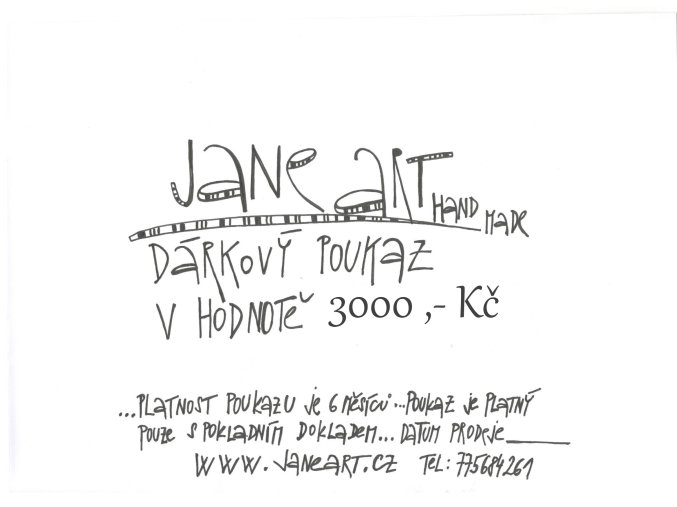 JANE ART HAND MADE
DÁRKOVÝ POUKAZ
V HODNOTĚ 3000 ,- Kč
...PLATNOST POUKAZU je 6 MĚSÍCŮ...POUKAZ je PLATNÝ
POUZE S POKLADNÍM DOKLADEM... DATUM PRODEJE________
WWW.JANEART.CZ TEL: 775684261